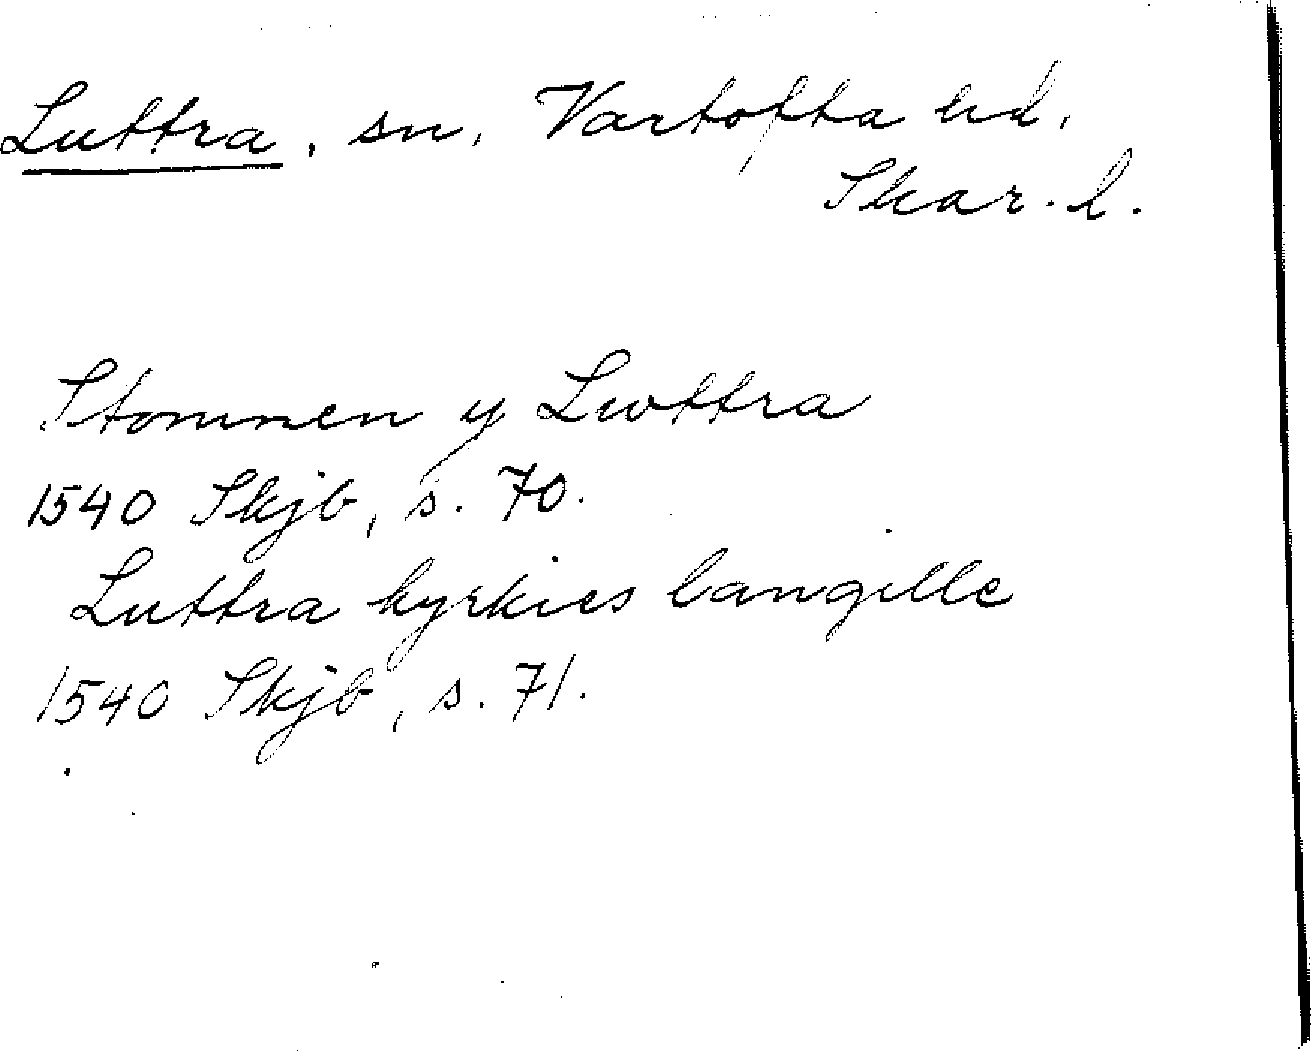 Luttra, sn, Vartofta hd.
Skar. l.
Stommen y Lwttra
1540 Skjb, s. 70.
Luttra kyrkies langille
1540 Skjb, s. 71.